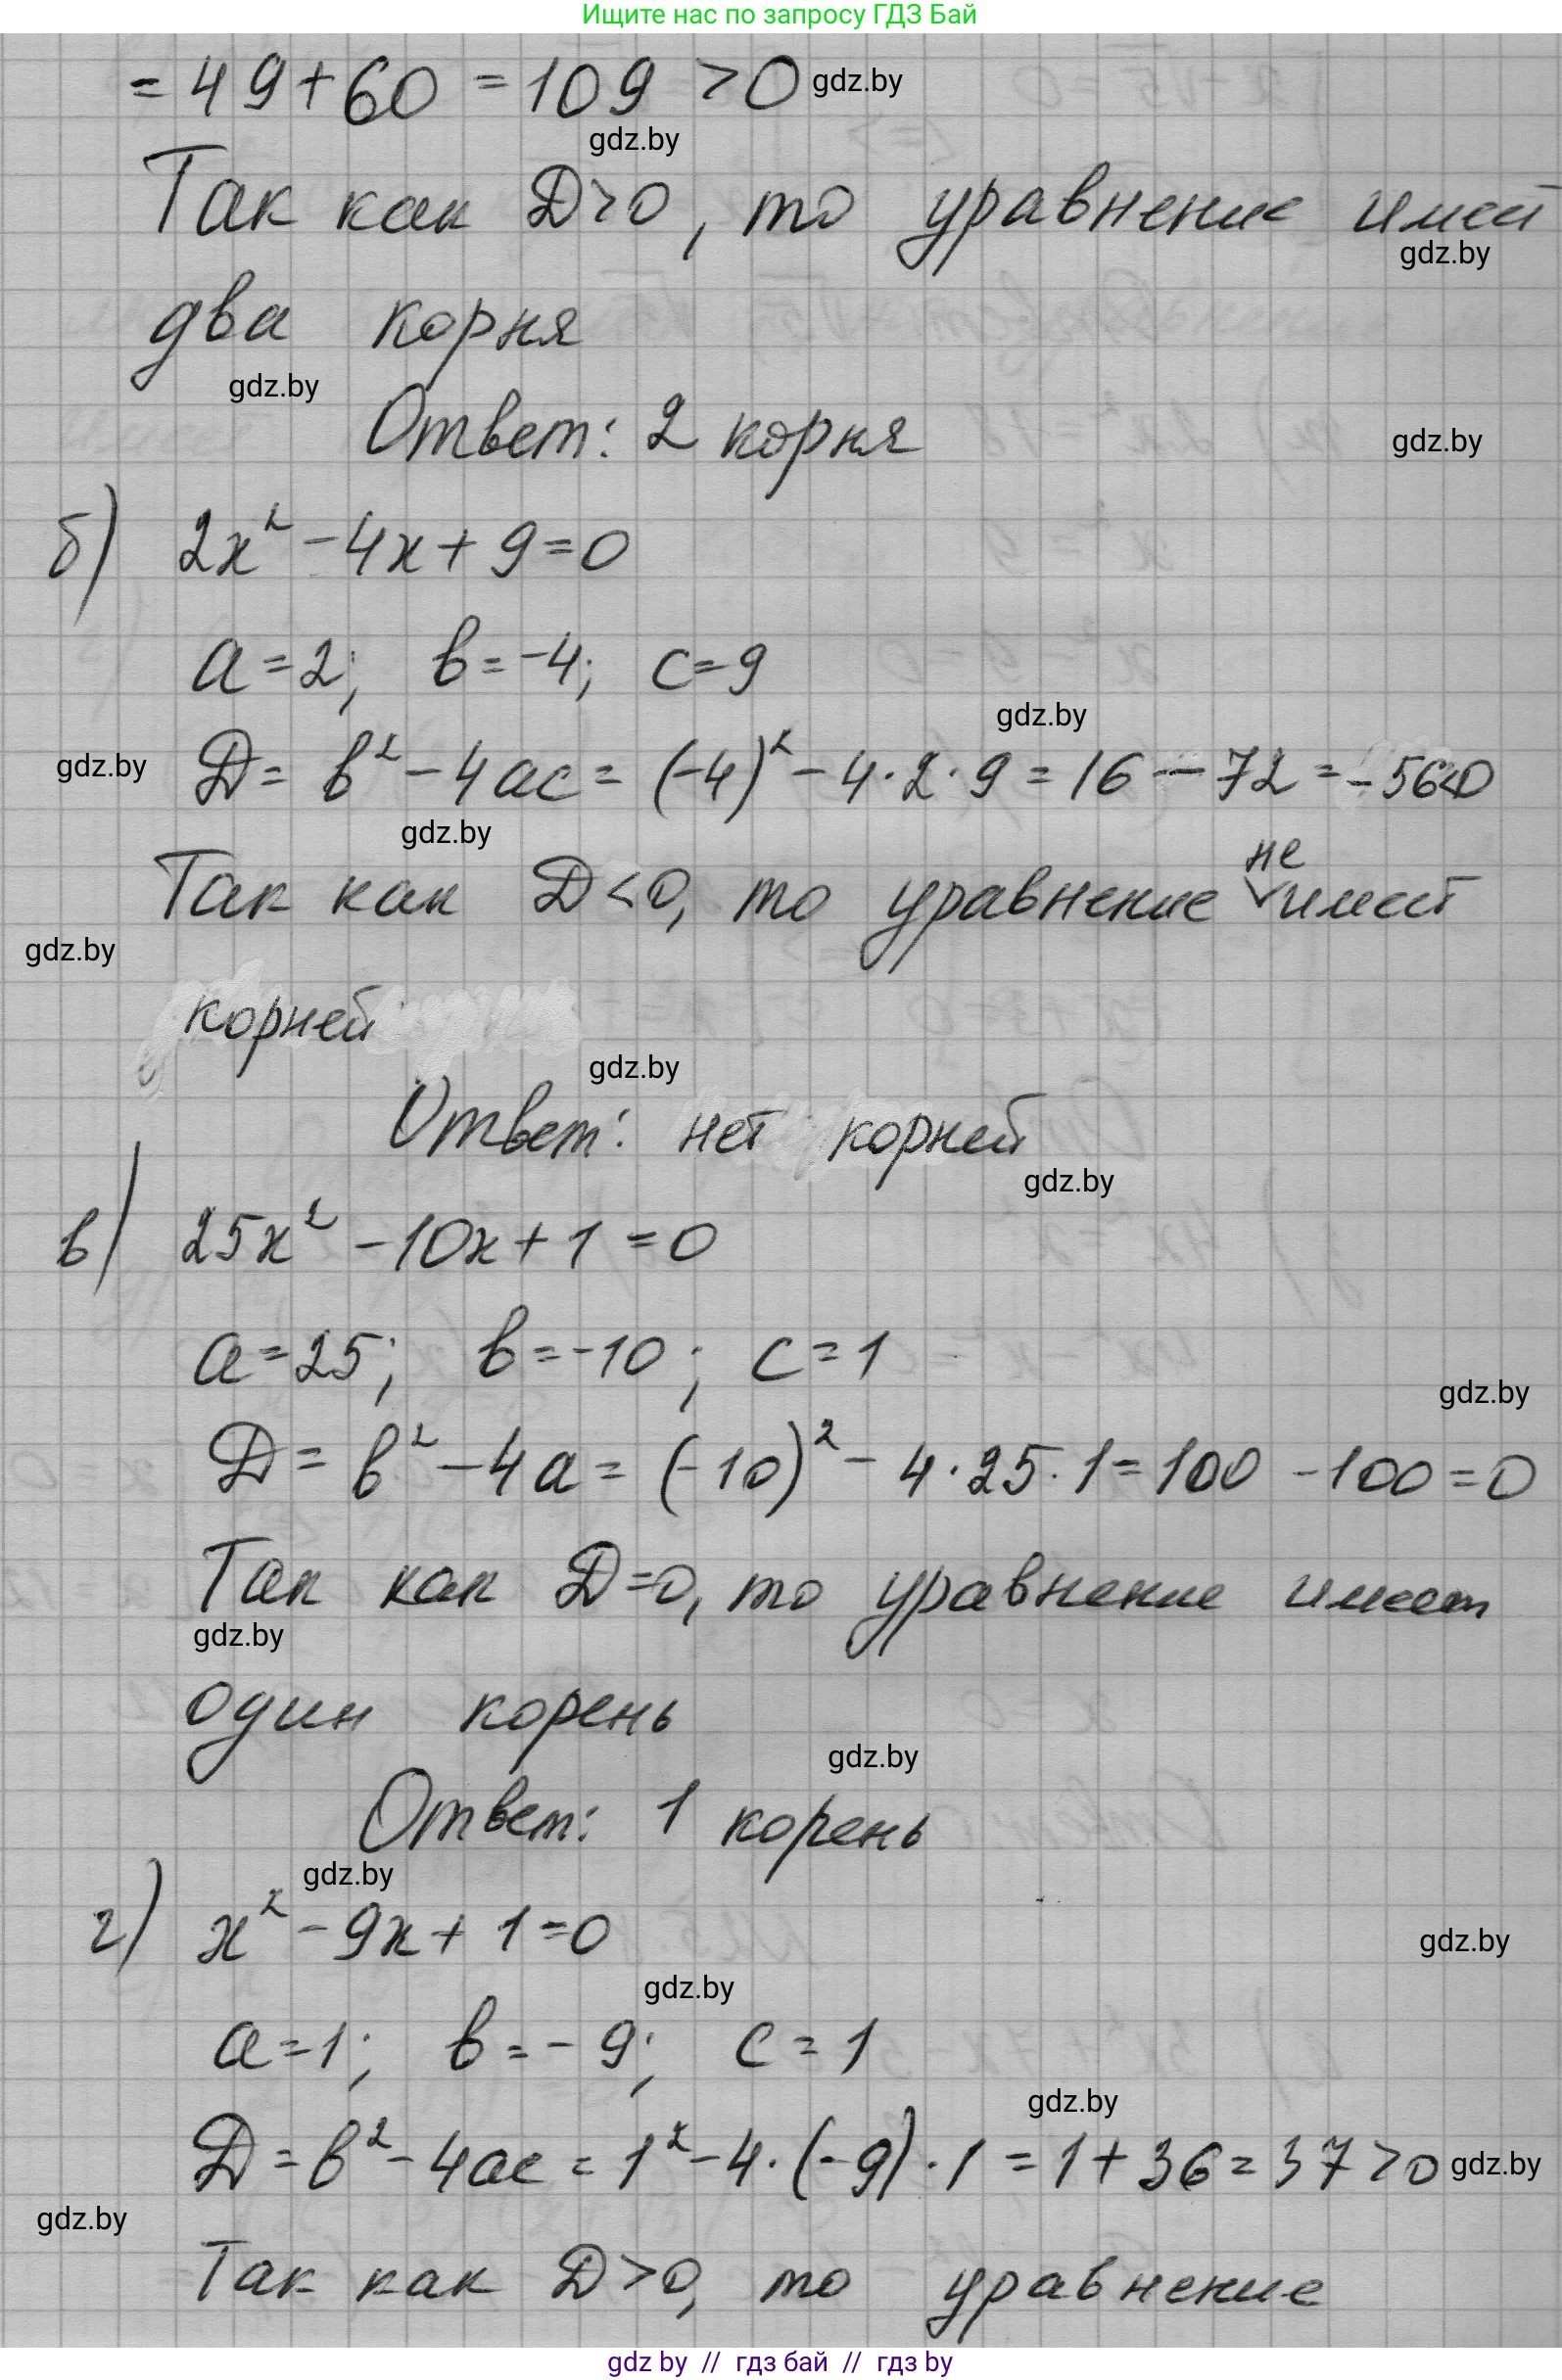 Ищите нас по запросу ГДЗ Бай
= 49 + 60 = 109 > 0 gdz.by
gdz.by
Так как D>0, то уравнение имеет
gdz.by
два корня
gdz.by
Ответ: 2 корня gdz.by
б) 2x² - 4x + 9 = 0
a = 2; b = -4; c = 9
gdz.by
gdz.by D = b² - 4ac = (-4)² - 4·2·9 = 16 - 72 = -56<0
gdz.by
не
Так как D<0, то уравнение √имеет
gdz.by
корней
gdz.by
Ответ: нет корней
gdz.by
в) 25x² - 10x + 1 = 0
a = 25; b = -10; c = 1
gdz.by
D = b² - 4a = (-10)² - 4·25·1 = 100 - 100 = 0
Так как D=0, то уравнение имеет
gdz.by
один корень
gdz.by
Ответ: 1 корень
gdz.by
г) x² - 9x + 1 = 0
gdz.by
gdz.by
a = 1; b = -9; c = 1
gdz.by
D = b² - 4ac = 1² - 4·(-9)·1 = 1 + 36 = 37 > 0 gdz.by
gdz.by
Так как D>0, то уравнение
gdz by // гдз бай // gdz by